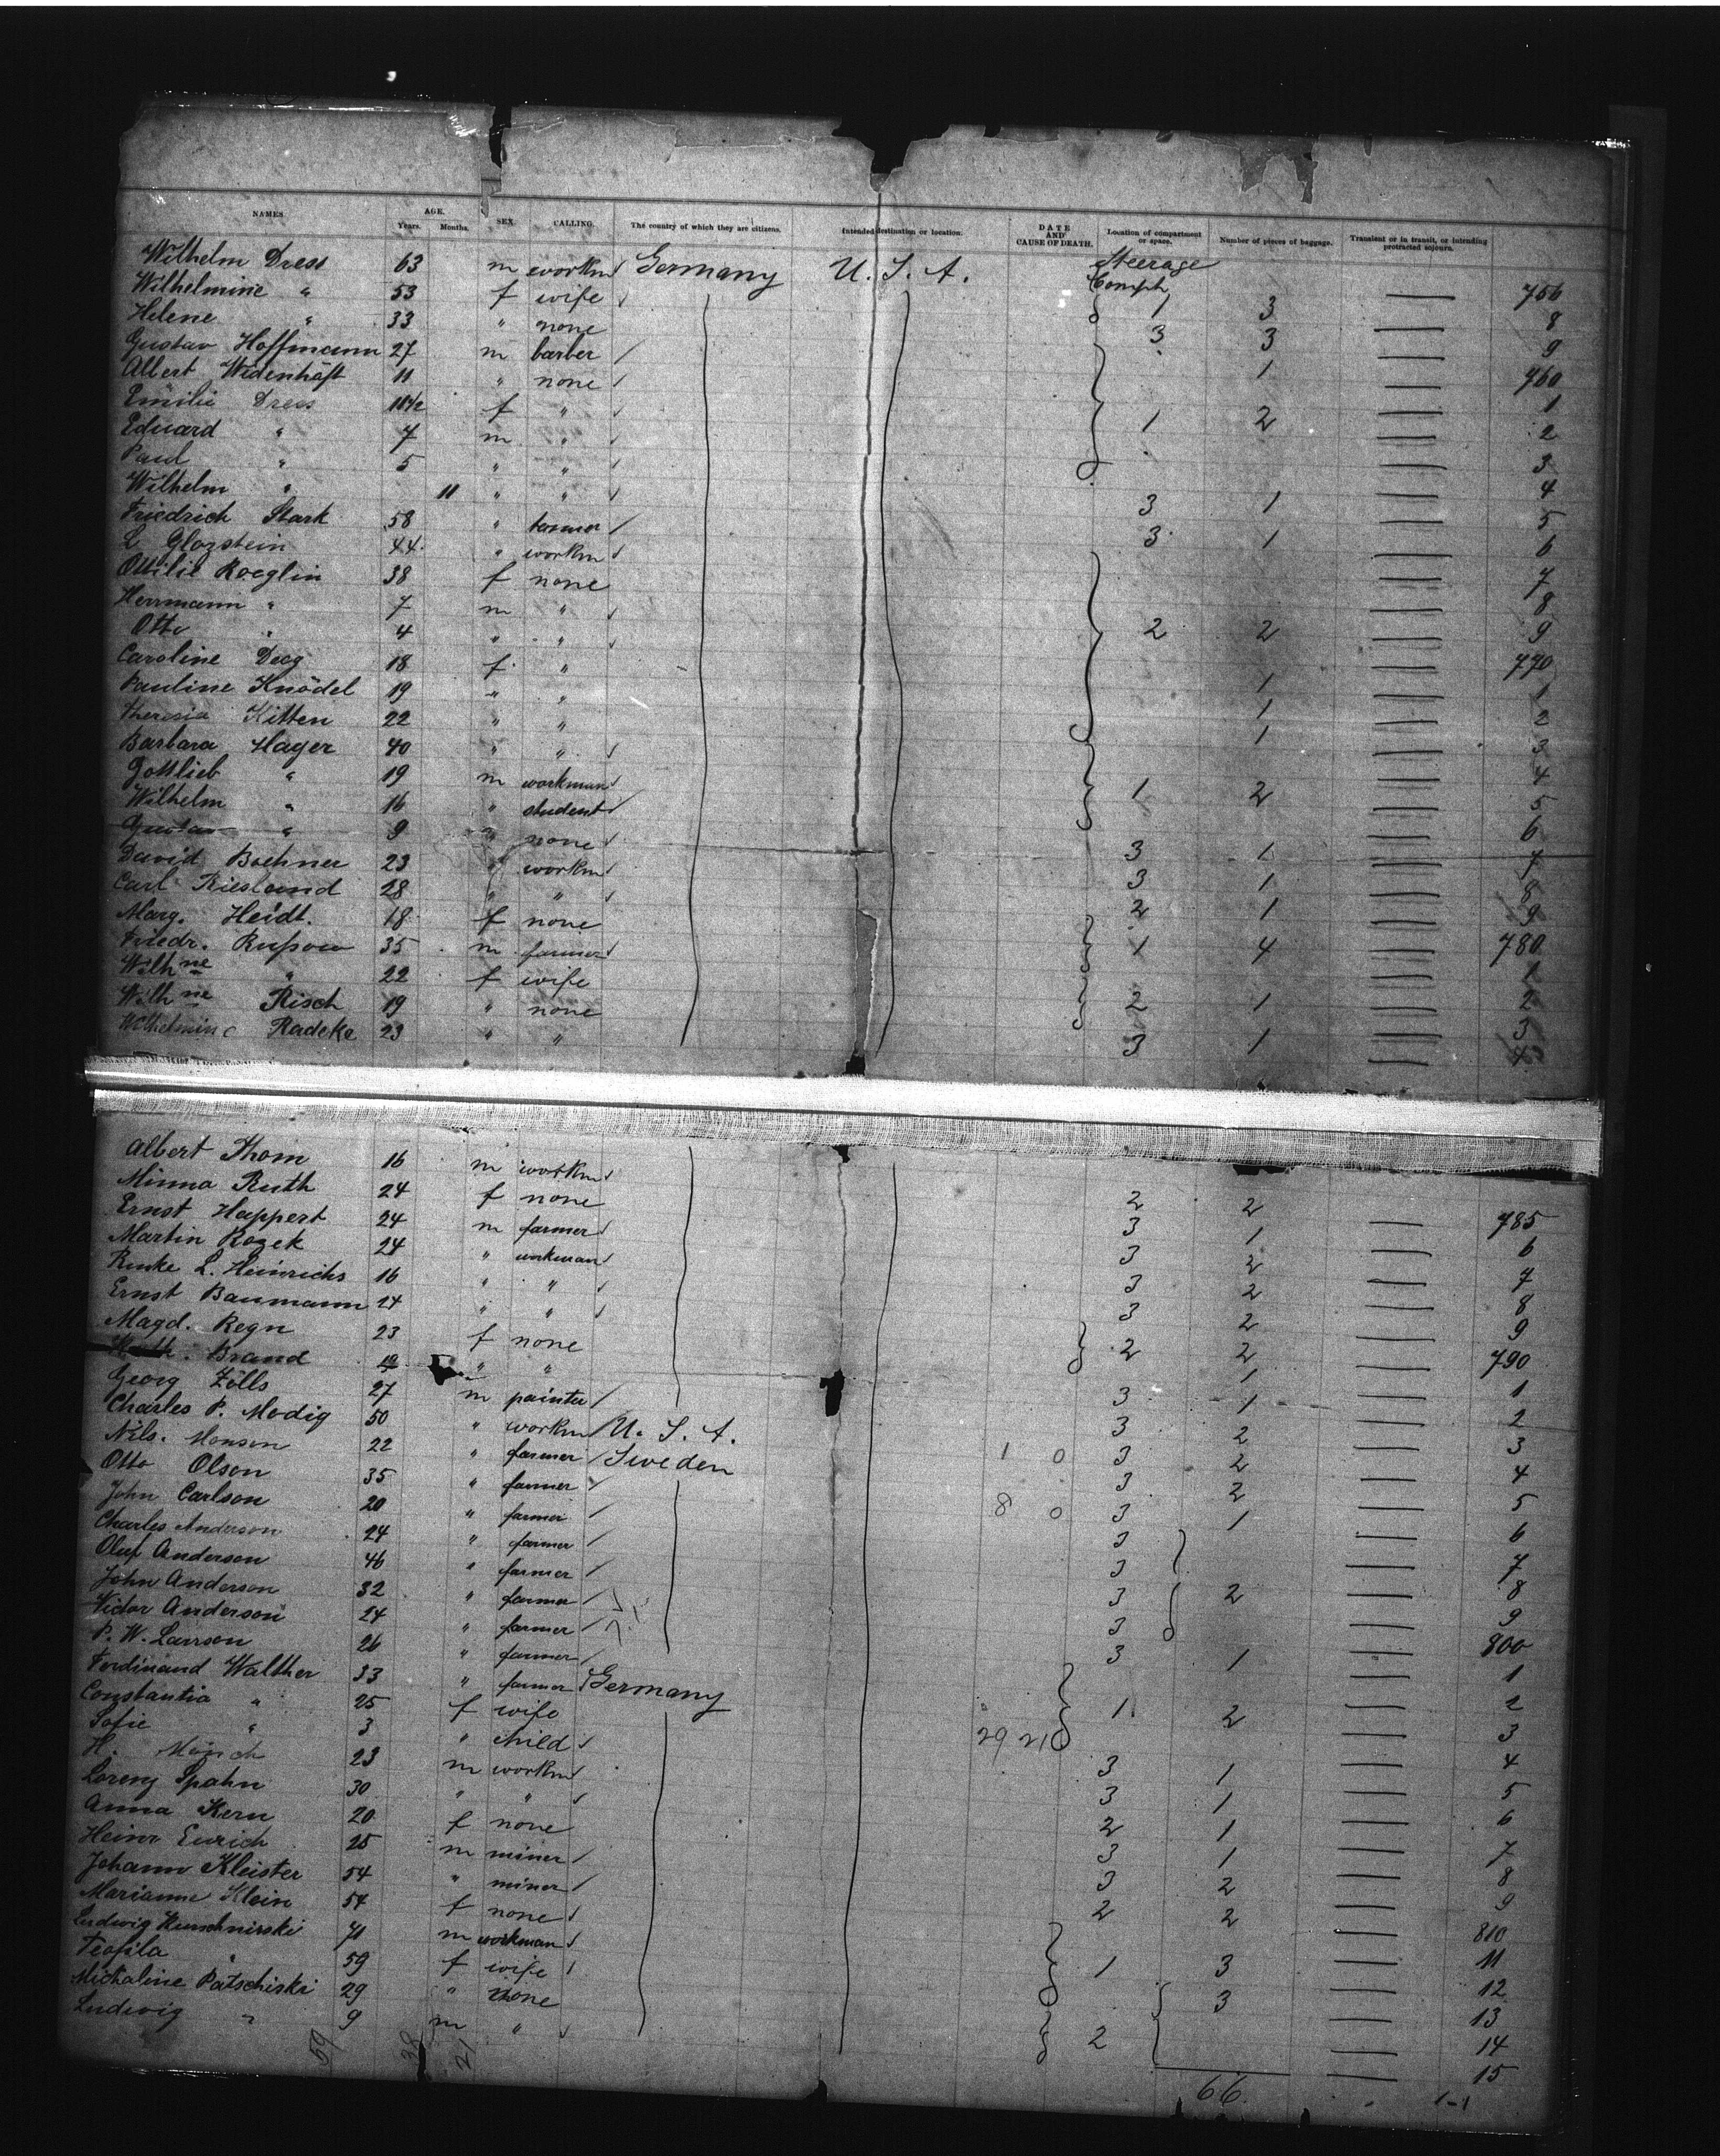 NAMES. AGE. SEX. CALLING. The country of which they are citizens. Intended destination or location. DATE AND CAUSE OF DEATH. Location of compartment or space. Number of pieces of baggage. Transient or in transit, or intending protracted sojourn.
Years. Months.
Wilhelm Dress 63 m workm Germany U. S. A. Steerage
Wilhelmine " 53 f wife 1 3 756
Helene " 33 " none 3 3 8
Gustav Hoffmann 27 m barber 1 9
Albert Widenhäft 11 " none 760
Emilie Dress 11 1/2 f " 1 2 1
Eduard " 7 m " 2
Paul " 5 " " 3
Wilhelm " 11 " " 3 1 4
Friedrich Stark 58 " 3 1 5
L Glozstein 44 " workm 6
Ottilie Roeglin 38 f none 7
Herrmann " 7 m " 8
Otto " 4 " " 2 2 9
Caroline Deeg 18 f " 770
Pauline Knödel 19 " " 1 1
Theresia Kitten 22 " " 1 2
Barbara Hager 40 " " 1 3
Gottlieb " 19 m workman 4
Wilhelm " 16 " student 1 2 5
Gustav " 9 " none 6
David Boehner 23 " workm 3 1 7
Carl Riesland 28 " " 3 1 8
Marg. Heidt. 18 f none 2 1 9
Friedr. Rußow 35 m farmer 1 4 780
Wilhne " 22 f wife 1
Wilhne Risch 19 " none 2 1 2
Wilhelmine Radeke 23 " " 3 1 3
4
Albert Thom 16 m workm
Minna Ruth 24 f none 2 2
Ernst Happert 24 m farmer 3 1 785
Martin Rozek 24 " workman 3 2 6
Renke L. Heinrichs 16 " " 3 2 7
Ernst Baumann 24 " " 3 2 8
Magd. Regn 23 f none 2 2 9
Brand " " 1 790
Georg Zölls 27 m painter 3 1 1
Charles P. Modig 50 " workm U. S. A. 3 2 2
Nils. Monson 22 " farmer Sweden 1 0 3 2 3
Otto Olson 35 " farmer 3 2 4
John Carlson 20 " farmer 8 0 3 1 5
Charles Anderson 24 " farmer 3 6
Oluf Anderson 46 " farmer 3 7
John Anderson 32 " farmer 3 2 8
Victor Anderson 24 " farmer 3 9
P. W. Larson 26 " farmer 3 1 800
Ferdinand Walther 33 " farmer Germany 1
Constantia " 25 f wife 1 2 2
Sofie " 3 " child 29 21 3
H. Mönch 23 m workm 3 1 4
Lorenz Spahn 30 " " 3 1 5
Anna Kern 20 f none 2 1 6
Heinr Eurich 25 m miner 3 1 7
Johann Kleister 54 " miner 3 2 8
Marianne Klein 54 f none 2 2 9
Ludwig 71 m workman 810
Teofila " 59 f wife 1 3 11
Michaline Patschiski 29 " none 3 12
Ludwig " 9 m " 2 13
14
15
59 38 21 66 1-1